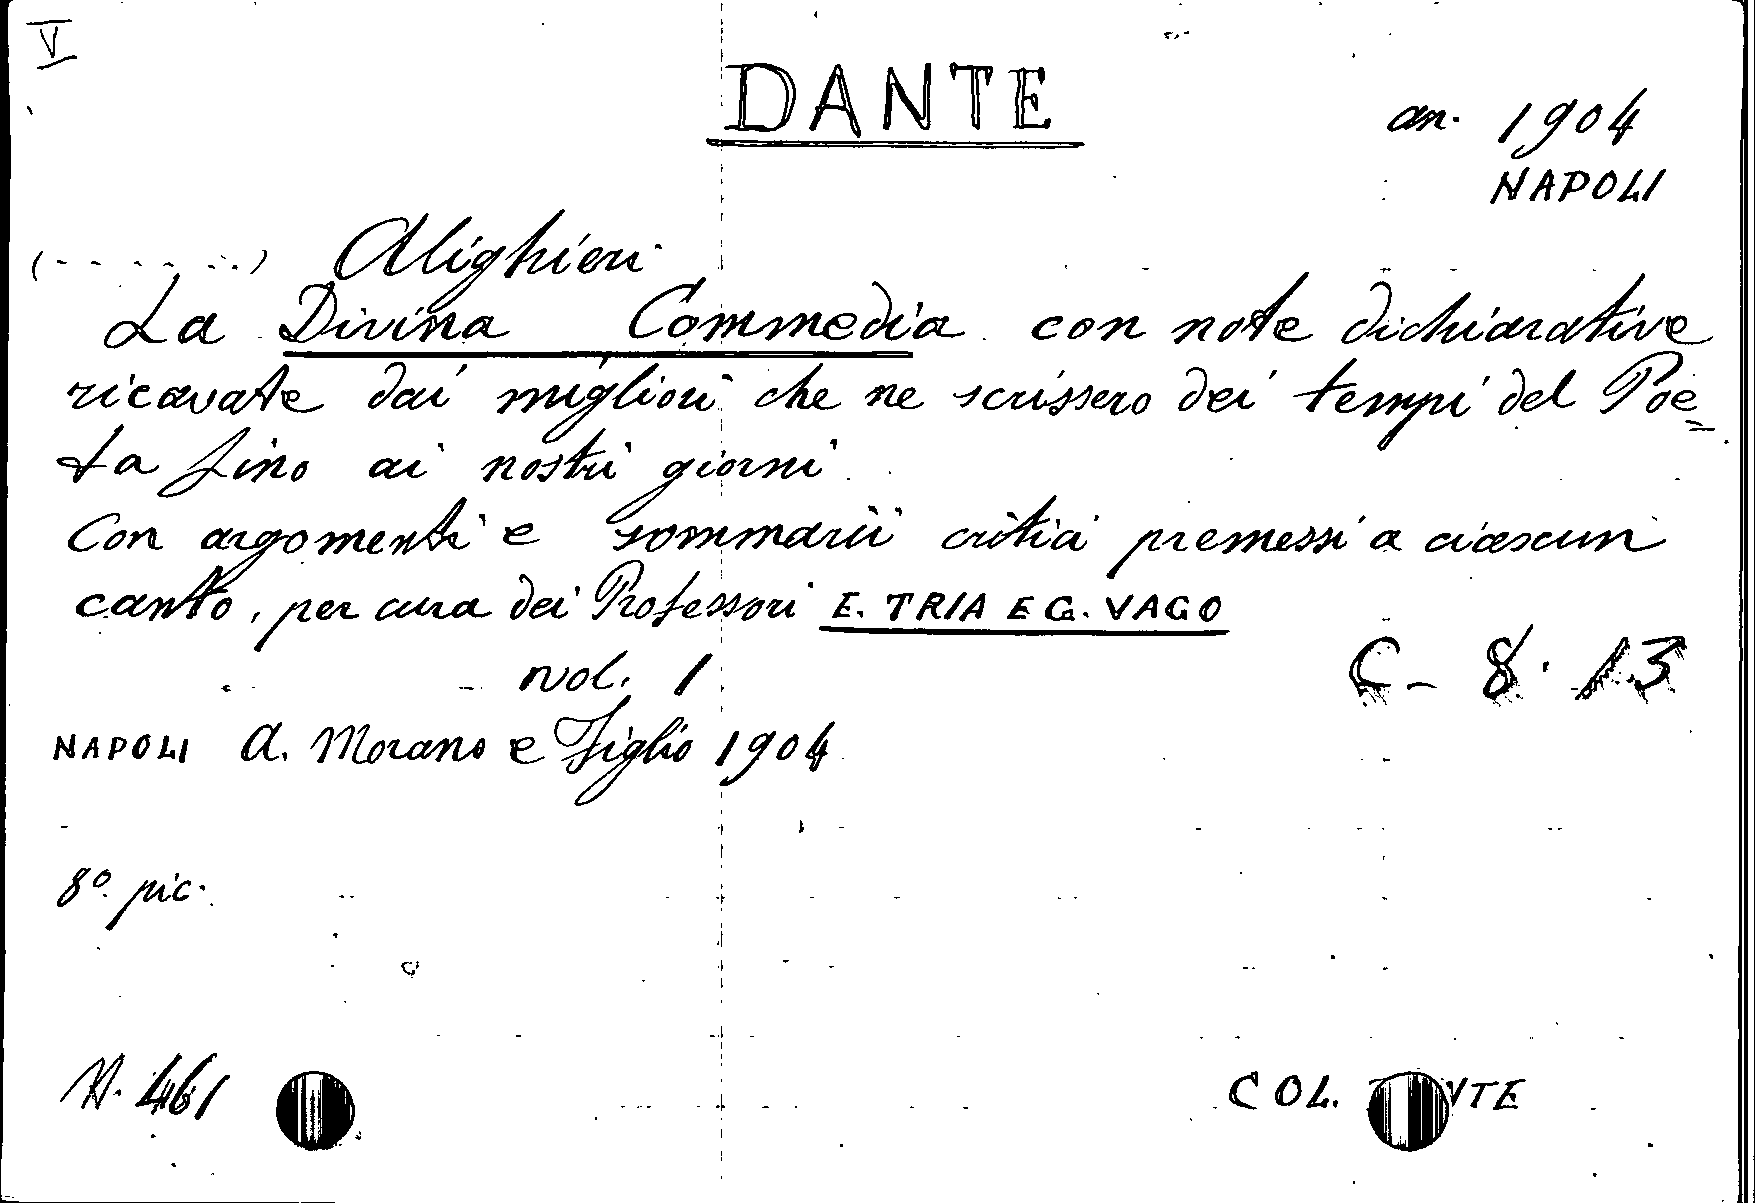 V
DANTE
an. 1904
NAPOLI
(- - - - - -) Alighieri
La Divina Commedia con note dichiarative
ricavate dai migliori che ne scrissero dei tempi del Poe=
ta fino ai nostri giorni
Con argomenti e sommarii critici premessi a ciascun
canto, per cura dei Professori E. TRIA E G. VAGO
vol. 1
C - 8. 13
NAPOLI A. Morano e Figlio 1904
8º pic.
N. 461
COL.